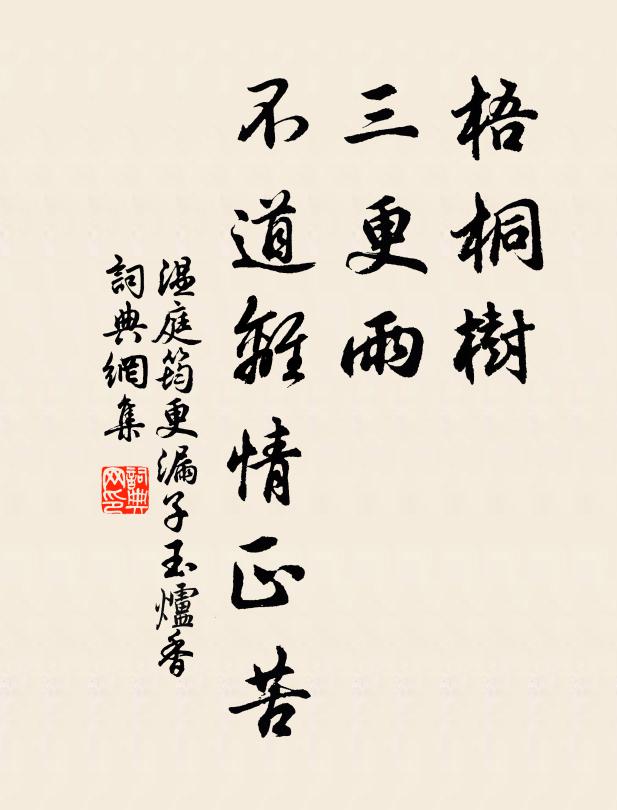 梧桐樹
三更雨
不道離情正苦
温庭筠更漏子玉爐香
詞典網集
詞典网印